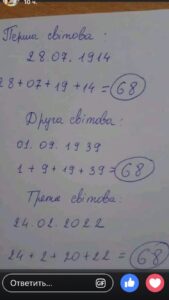 10 ч.
Перша світова:
28.07.1914
28+07+19+14=68
Друга світова:
01.09.1939
1+9+19+39=68
Третя світова:
24.02.2022
24+2+20+22=68
Ответить...
GIF